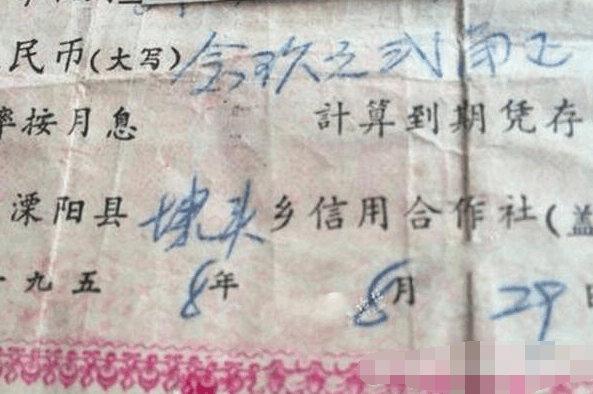 人民币(大写)念玖元弍角正
率按月息 計算到期凭存
溧阳县埭头乡信用合作社(盖
一九五8年8月29日